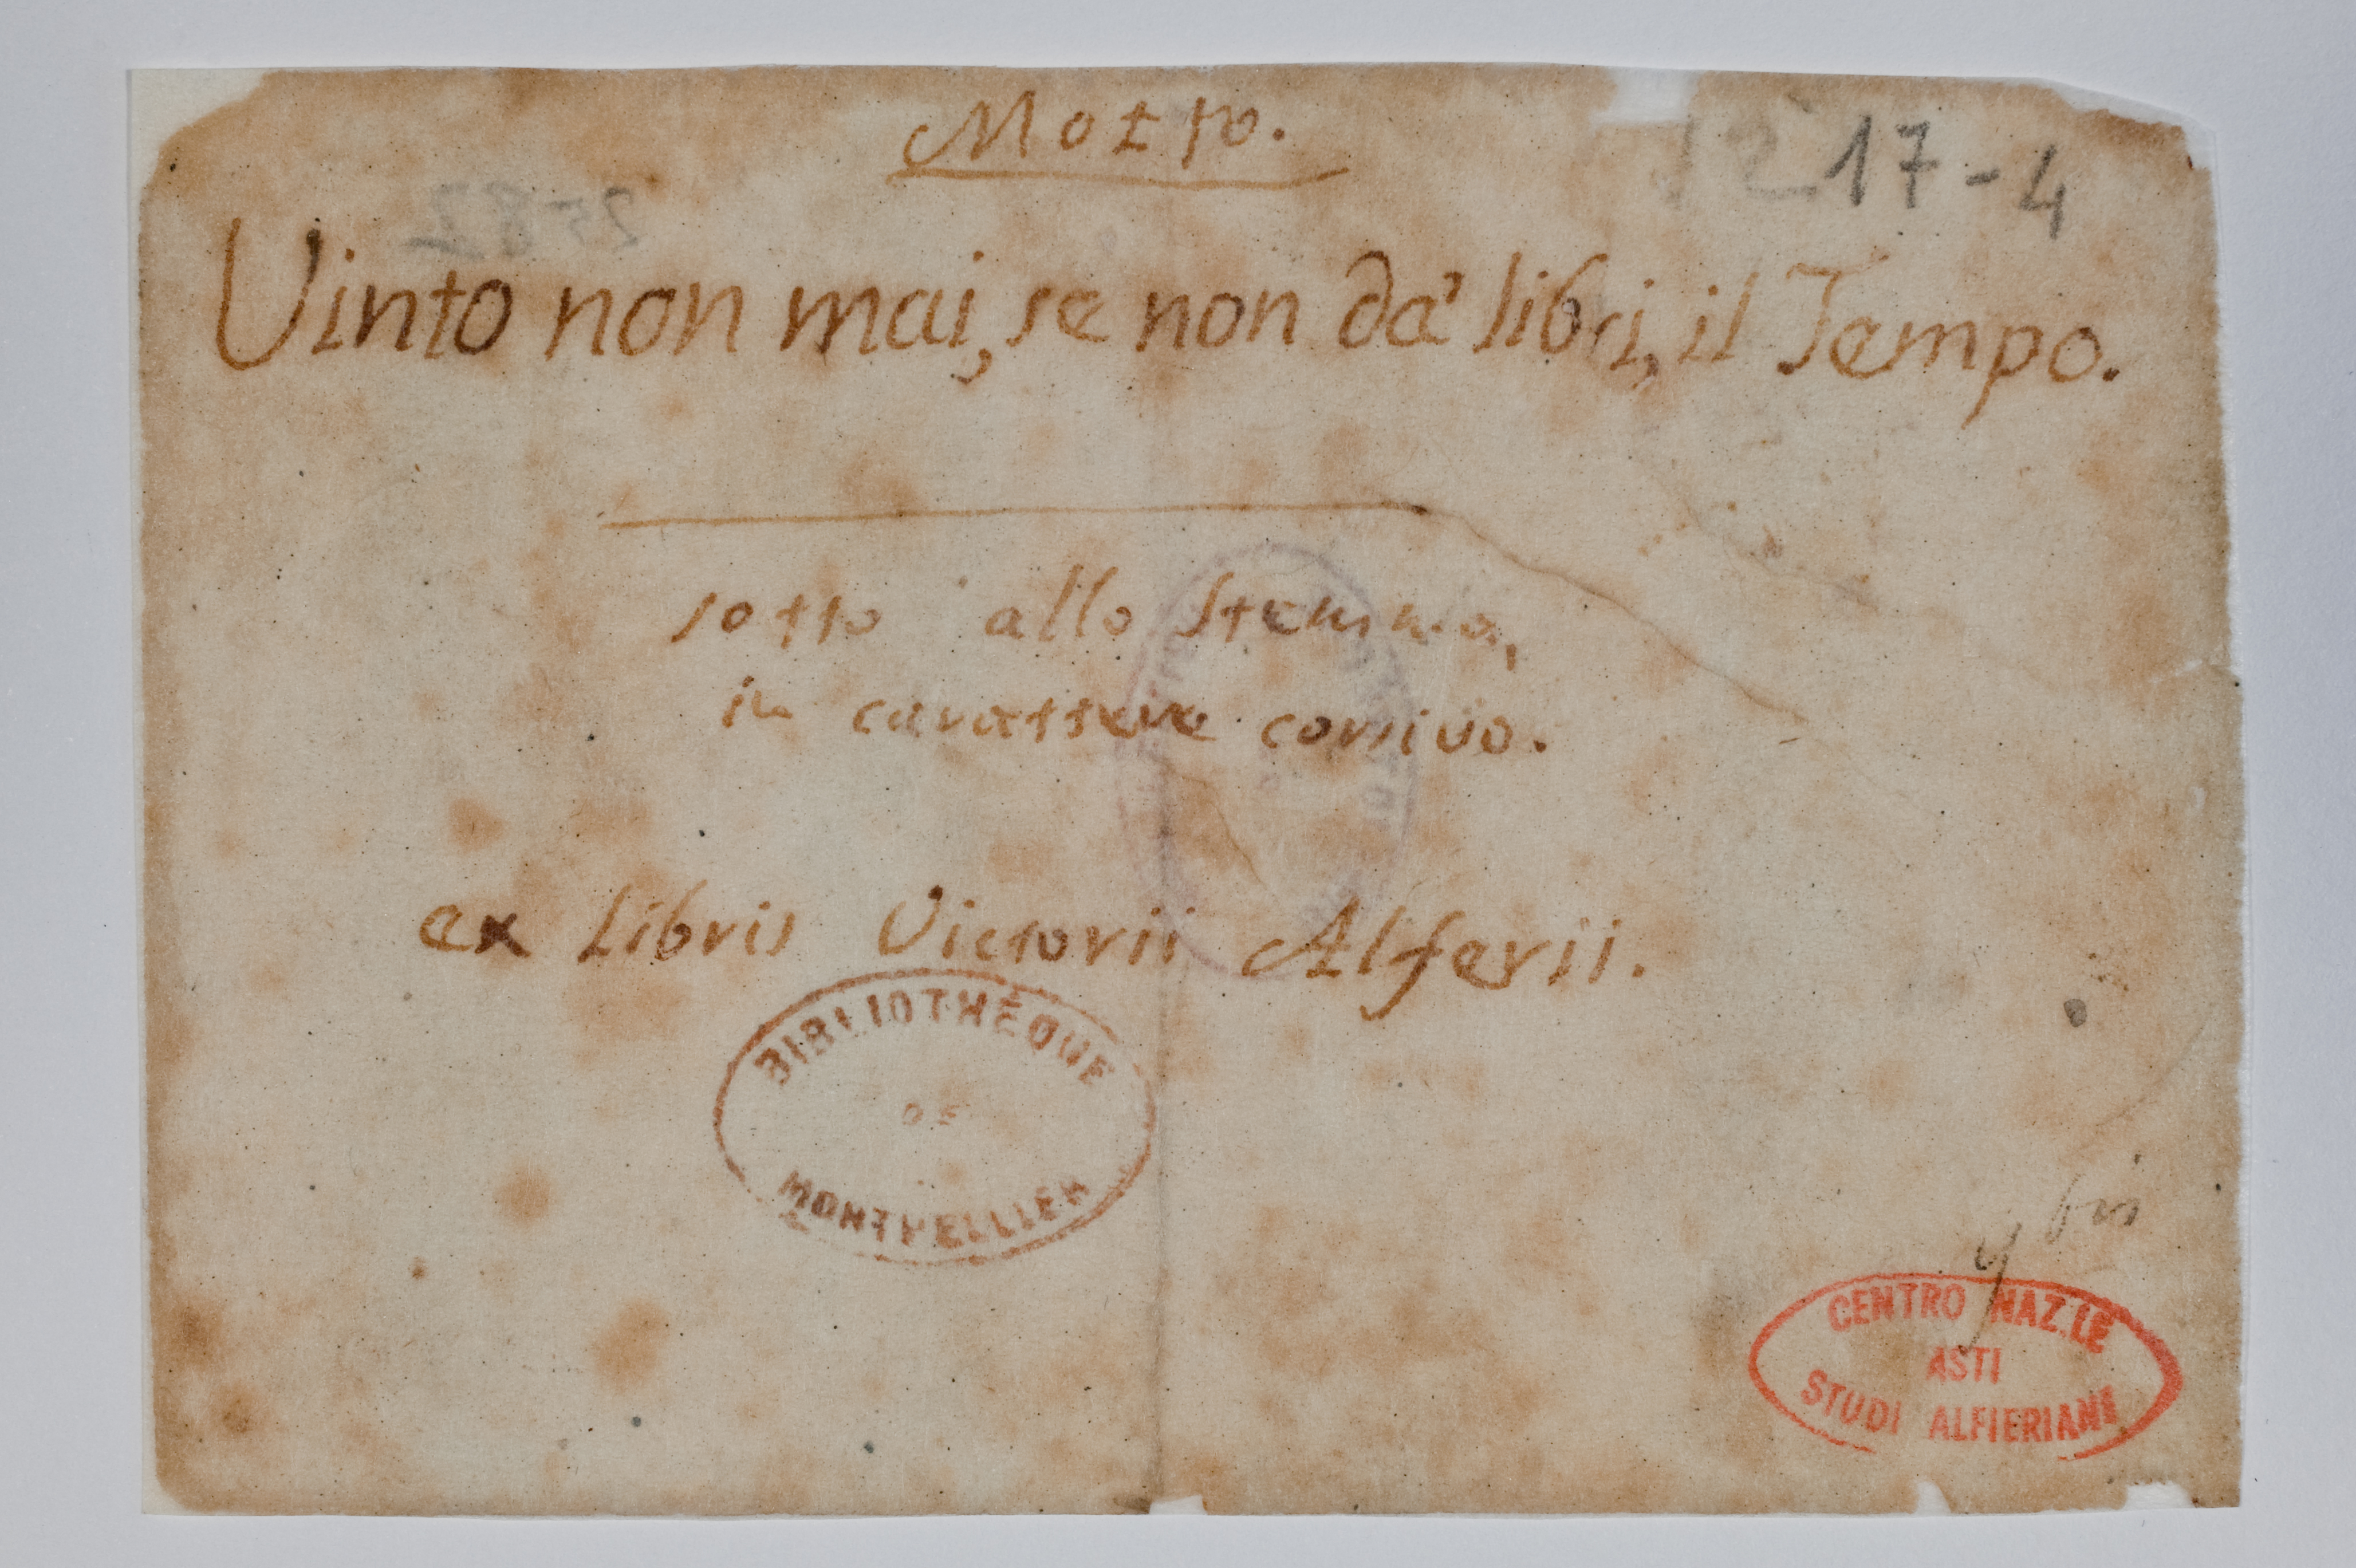 Motto.
17-4
Vinto non mai, se non da' libri, il Tempo.
sotto allo Stemma,
in carattere corsivo.
ex Libris Victorii Alferii.
BIBLIOTHÈQUE
DE
MONTPELLIER
bis
CENTRO NAZ.LE
ASTI
STUDI ALFIERIANI